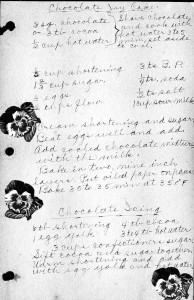 Chocolate Joy Cake
3 sq. chocolate
or 3 tb. cocoa
½ cup hot water
Shave chocolate
and cook with
hot water 3 to 5
min., set aside
to cool.
½ cup shortening
1½ cup sugar
3 eggs
2 cups flour
3 ts. B.P.
½ ts. soda
½ ts. salt
1 cup sour milk
Cream shortening and sugar
Beat eggs well and add
Add cooled chocolate mixture
with the milk.
Bake in two nine inch
layers. Put oiled paper in pans
Bake 30 to 35 min at 350° F
Chocolate Icing
4 tb. shortening 4 tb. cocoa
1 egg yolk 3 tb. hot water
3 cups confectioners sugar
Sift cocoa and sugar together
Warm shortening and add
with egg yolk and hot water